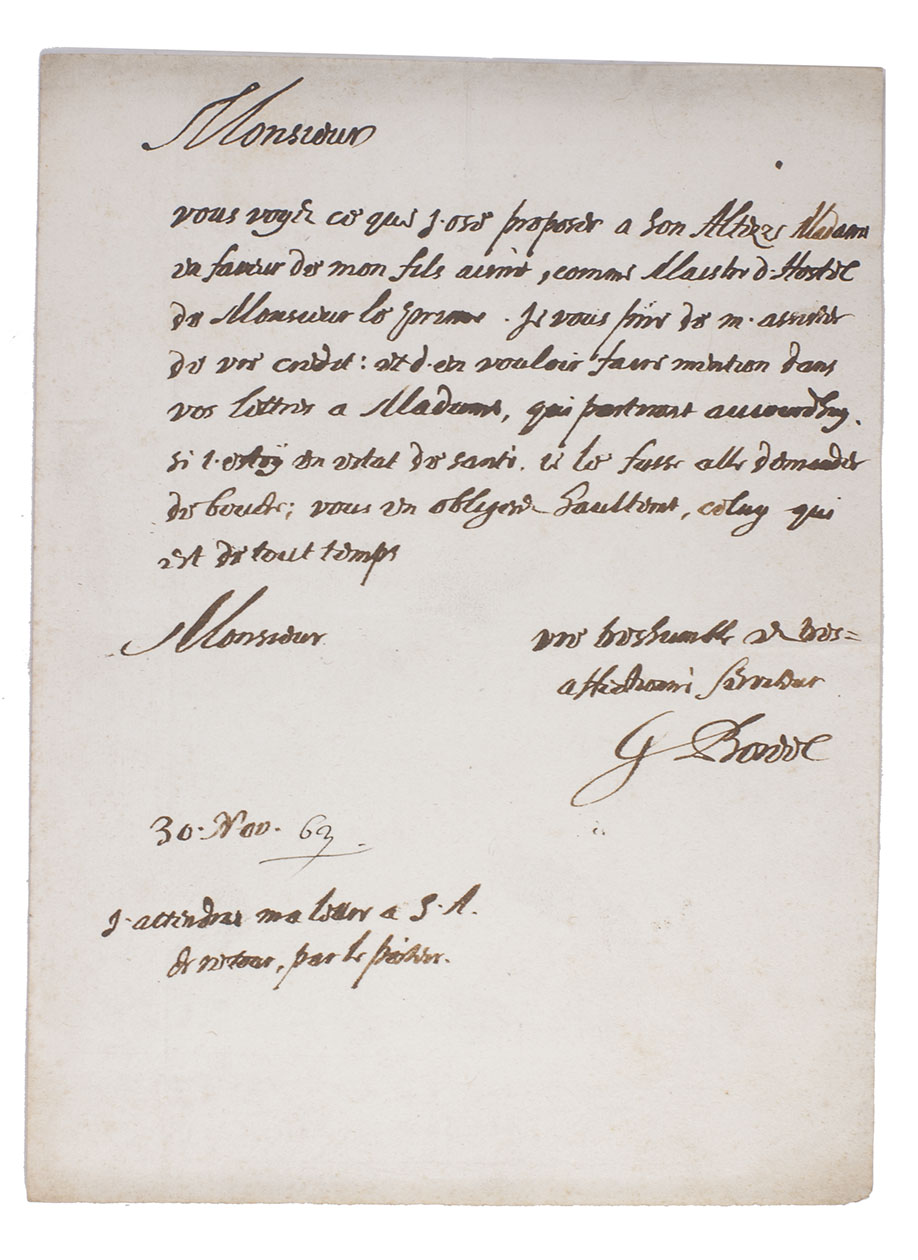 Monsieur
vous voyez ce que j'ose proposer a son Altezze Madame
en faveur de mon fils aisné, comme Maistre d'Hostel
de Monsieur le Prince. Je vous prie de m'assister
de vre credit: et d'en vouloir faire mention dans
vos lettres a Madame, qui partiront aujourdhuy.
si j'estoÿ en estat de santé, je le fusse allé demander
de bouche; vous en obligerez haultemt, celuy qui
est de tout temps
Monsieur
vre treshumble et tres=
affectionné serviteur
G
30. Nov. 63.
J'attendray ma lettre a S. A.
de retour, par le